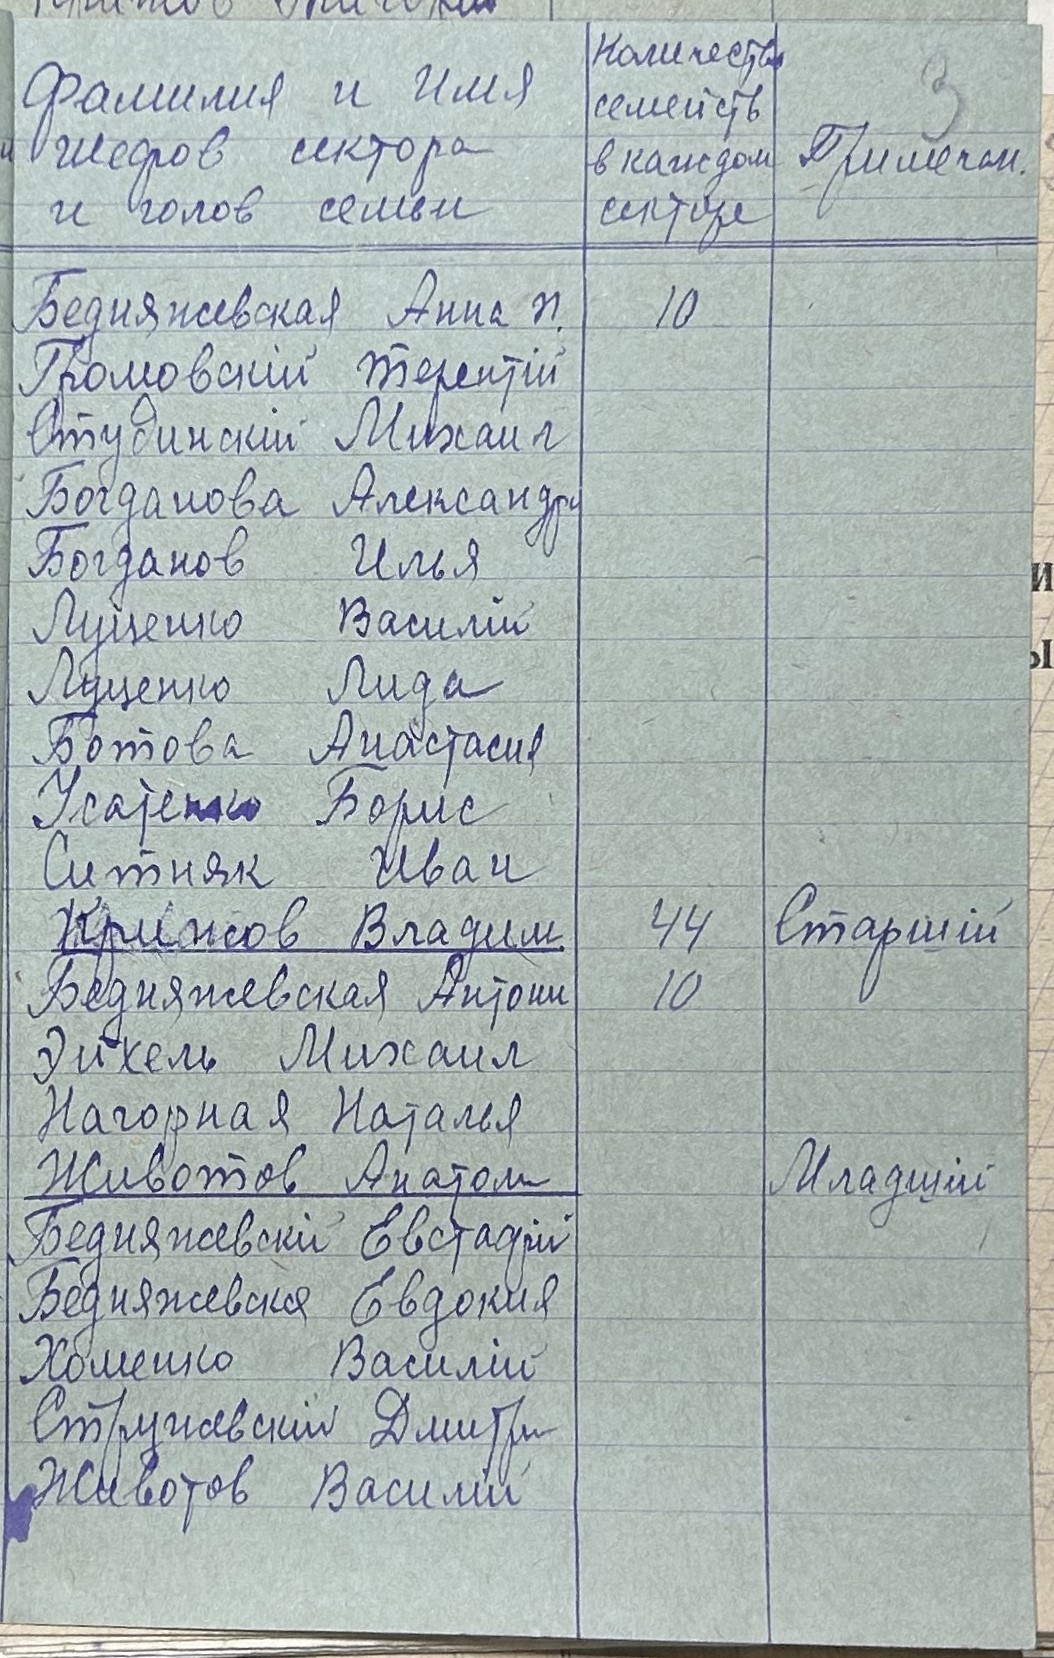 3
Фамилия и Имя
шефов сектора
и голов семьи
Количество
семейств
в каждом
секторе
Примечан.
Бедняжевская Анна Н. 10
Громовскій Терентій
Студинскій Михаил
Богданова Александра
Богданов Илья
Луценко Василій
Луценко Лида
Ботова Анастасия
Усатенко Борис
Ситняк Иван
Крижов Владим 44 Старшій
Бедняжевская Антони 10
Эйхель Михаил
Нагорная Наталья
Животов Анатоли Младшій
Бедняжевскій Евстафій
Бедняжевская Евдокия
Хоменко Василій
Стружевскій Дмитри
Животов Василій